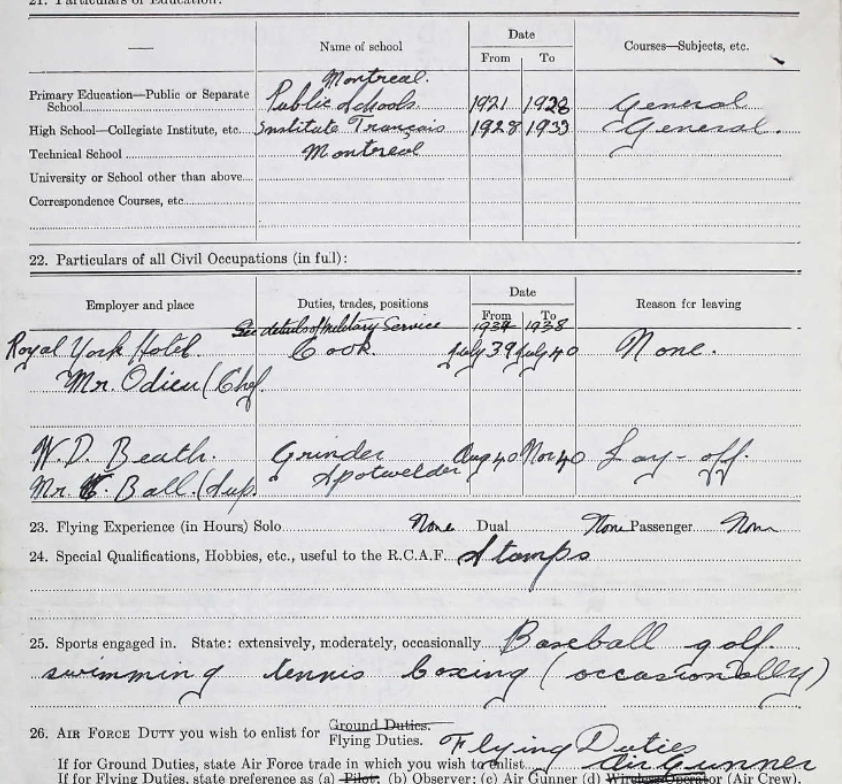 21. Particulars of Education:
Name of school Date Courses—Subjects, etc.
From To
Montreal.
Primary Education—Public or Separate School Public Schools. 1921 1928 General
High School—Collegiate Institute, etc. Institute Français 1928 1933 General.
Technical School Montreal
University or School other than above
Correspondence Courses, etc
22. Particulars of all Civil Occupations (in full):
Employer and place Duties, trades, positions Date Reason for leaving
From To
See details of Military Service 1934 1938
Royal York Hotel. Cook. July 39 July 40 None.
Mr. Odieu (Chef.
W.D. Beath. Grinder Aug 40 Nov 40 Lay-off.
Spotwelder
Mr. Ball. (Sup.
23. Flying Experience (in Hours) Solo None Dual None Passenger None
24. Special Qualifications, Hobbies, etc., useful to the R.C.A.F. Stamps
25. Sports engaged in. State: extensively, moderately, occasionally Baseball golf
swimming tennis boxing (occasionally)
26. AIR FORCE DUTY you wish to enlist for Ground Duties.
Flying Duties. Flying Duties
If for Ground Duties, state Air Force trade in which you wish to enlist air Gunner
If for Flying Duties, state preference as (a) Pilot: (b) Observer: (c) Air Gunner (d) Wireless Operator (Air Crew).